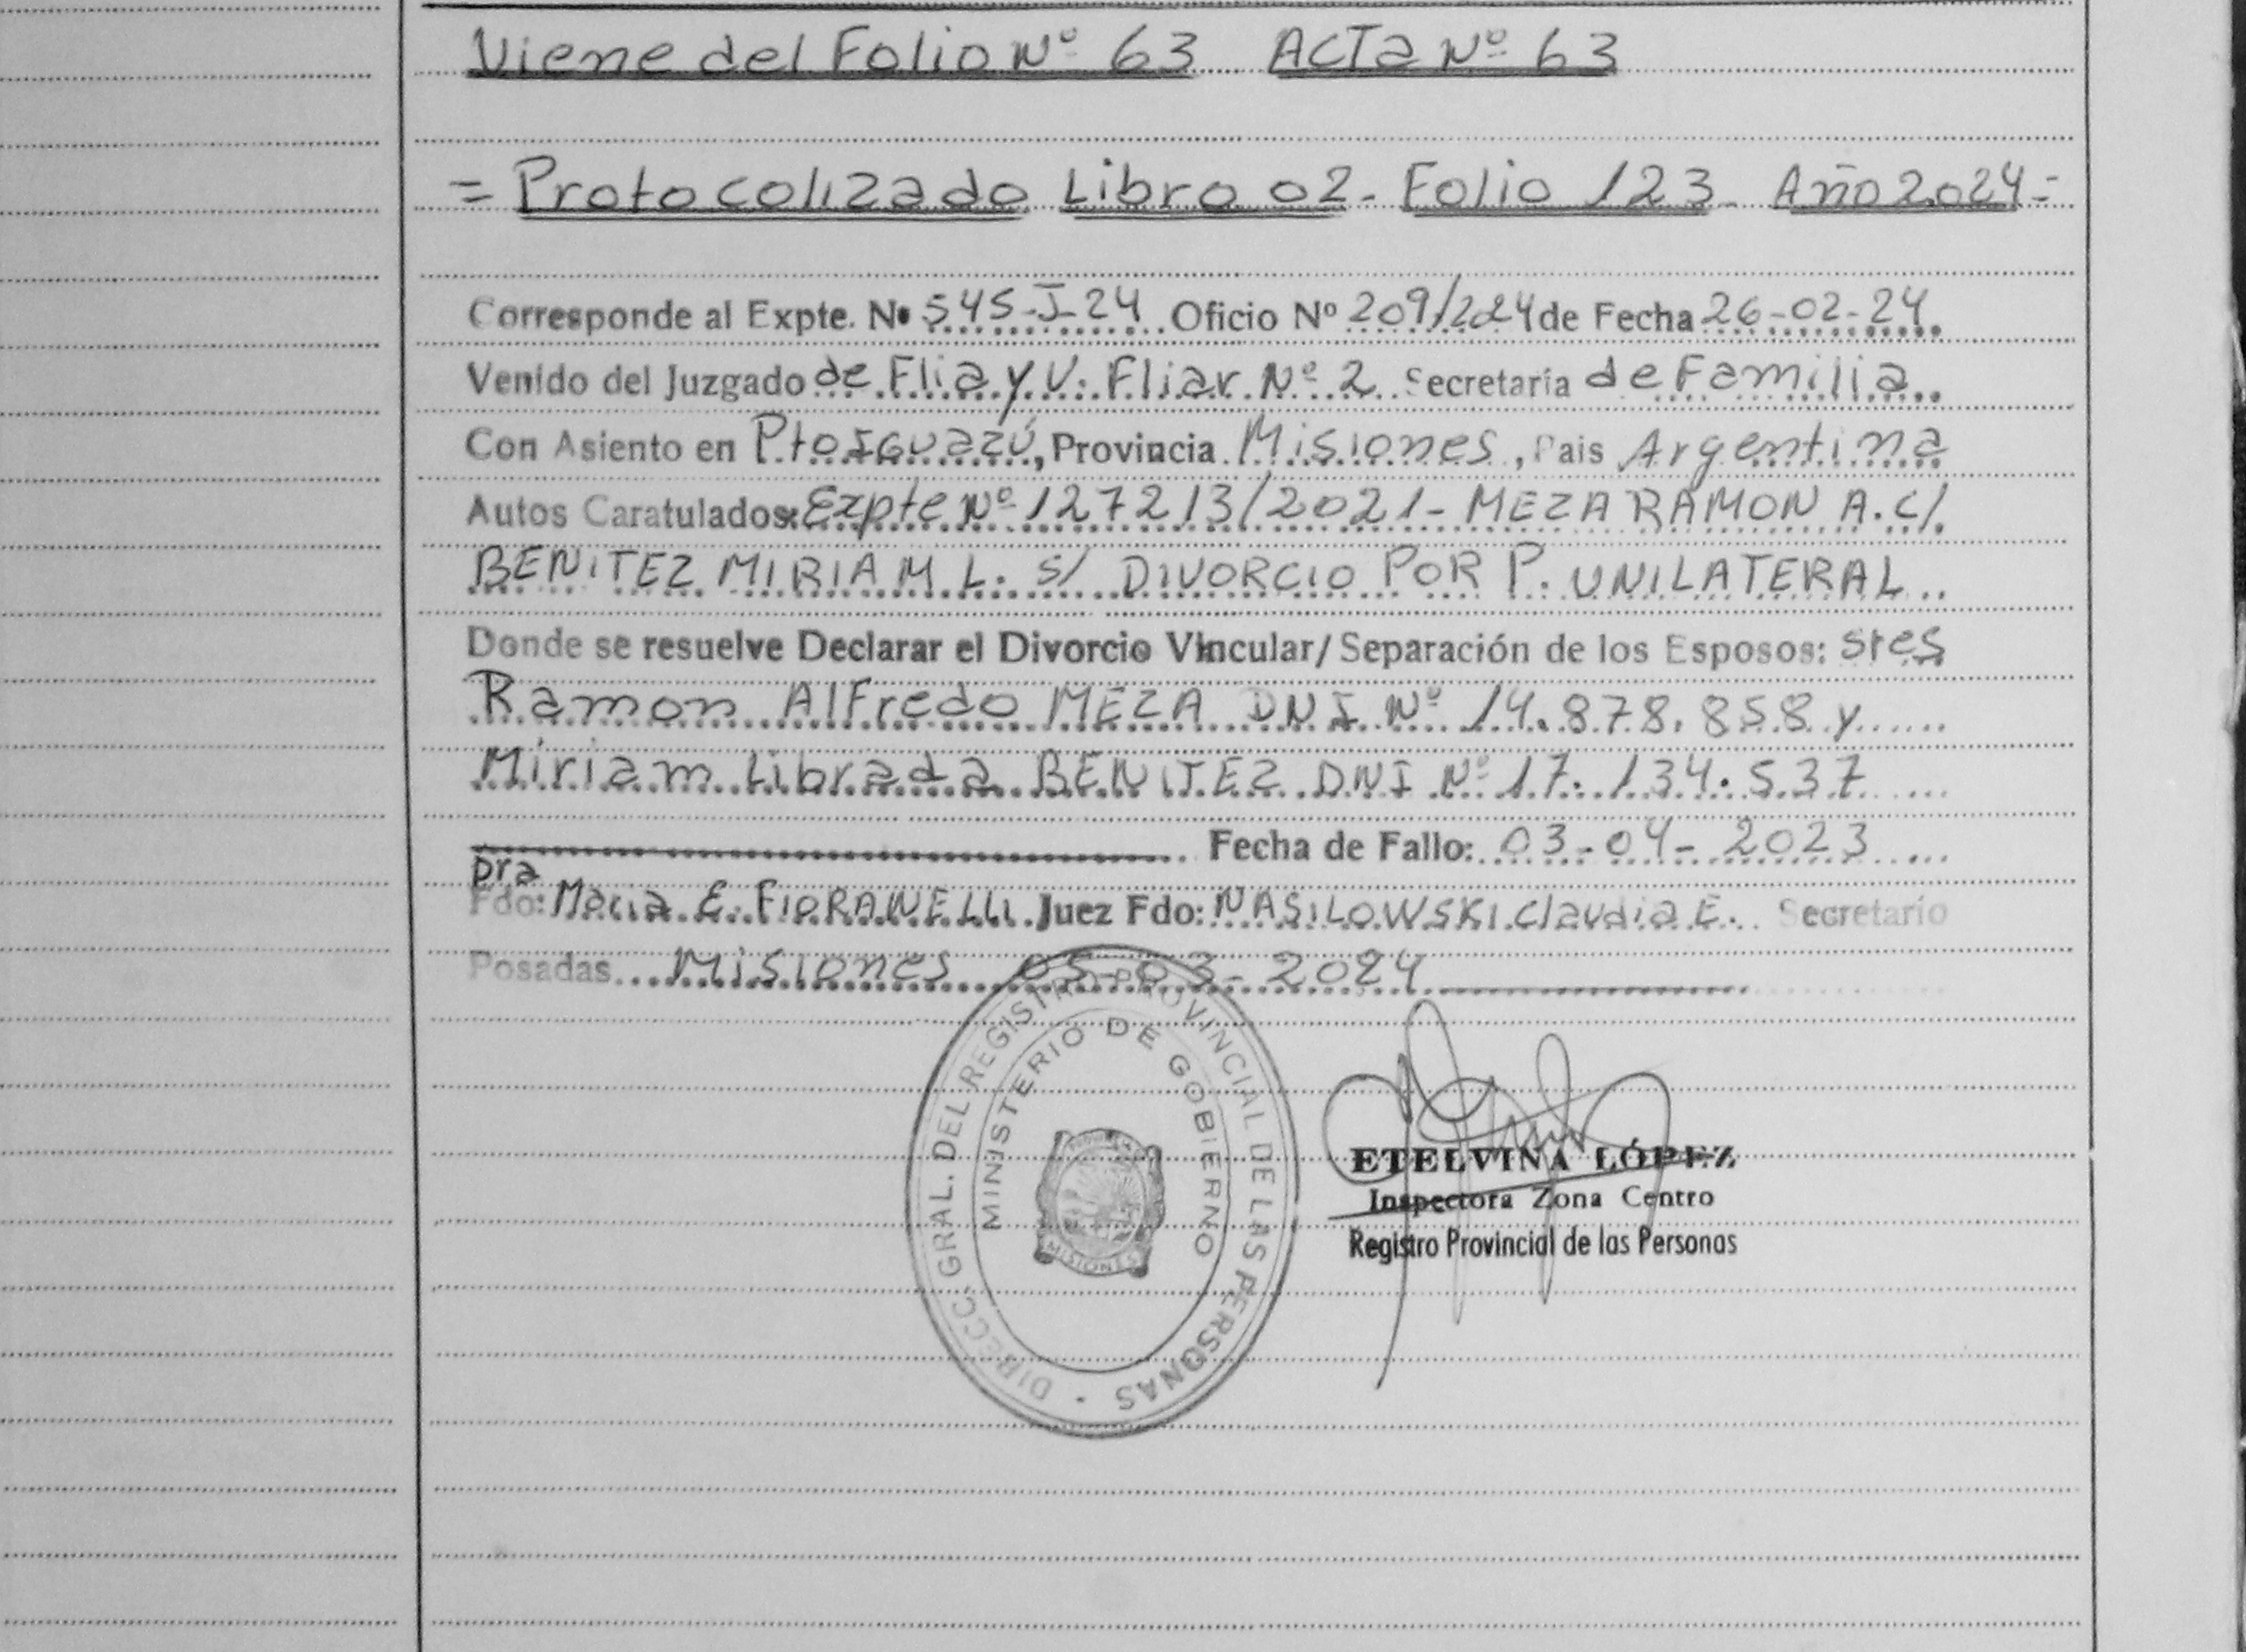 Viene del Folio Nº 63 ACTA Nº 63
= Protocolizado Libro 02 - Folio 123 - Año 2024 =
Corresponde al Expte. Nº 545-J-24 Oficio Nº 209/2024 de Fecha 26-02-24
Venido del Juzgado de Flia y V. Fliar Nº 2 Secretaría de Familia
Con Asiento en Pto Iguazú, Provincia Misiones, Pais Argentina
Autos Caratulados: Expte Nº 127213/2021- MEZA RAMON A. C/
BENITEZ MIRIAM L. S/ DIVORCIO POR P. UNILATERAL
Donde se resuelve Declarar el Divorcio Vincular/Separación de los Esposos: stes
Ramon Alfredo MEZA DNI Nº 14.878.858 y
Miriam Librada BENITEZ DNI Nº 17.134.537
Fecha de Fallo: 03-04-2023
pra
Fdo: Maria E. FIORANELLI Juez Fdo: NASILOWSKI Claudia E. Secretario
Posadas Misiones 05-03-2024
DIRECC. GRAL. DEL REGISTRO PROVINCIAL DE LAS PERSONAS
MINISTERIO DE GOBIERNO
MISIONES
ETELVINA LÓPEZ
Inspectora Zona Centro
Registro Provincial de las Personas